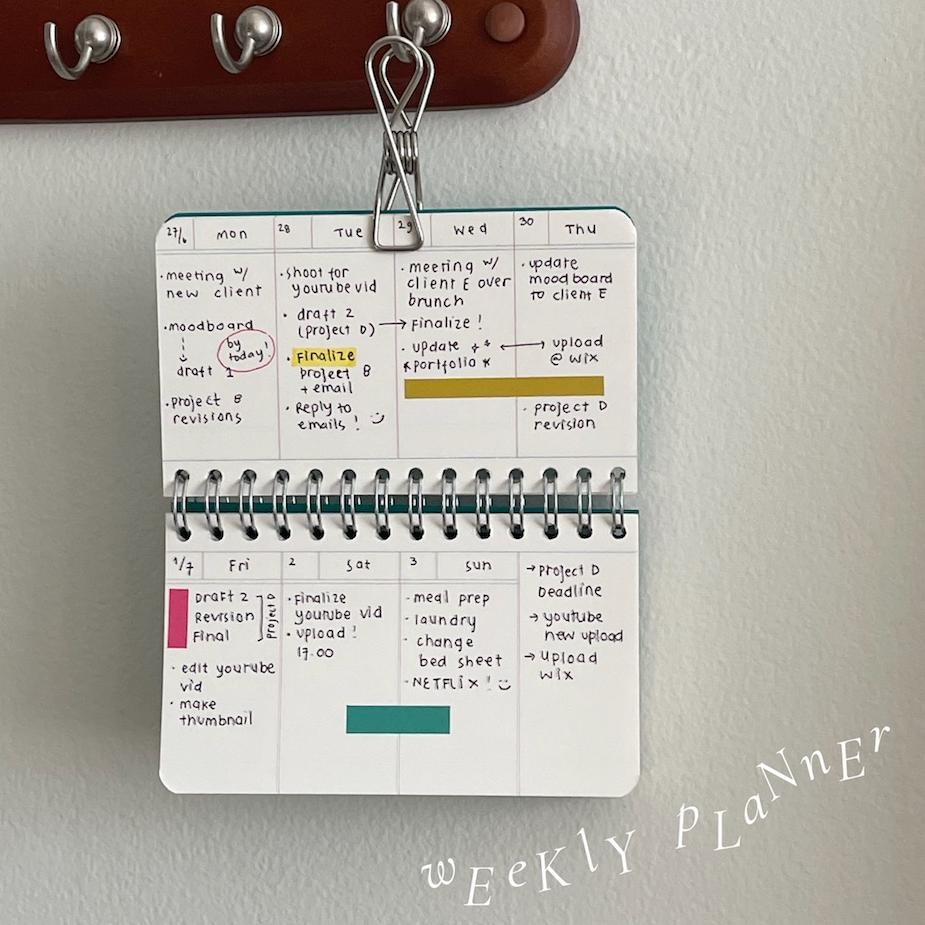 27/6 Mon
28 Tue
29 Wed
30 Thu
• meeting w/
new client
• moodboard
by
today!
draft 1
• project B
revisions
• shoot for
youtube vid
• draft 2
(project D) →
• Finalize
project B
+ email
• Reply to
emails !
• meeting w/
client E over
brunch
Finalize !
• update
*portfolio*
• update
moodboard
to client E
upload
@ wix
• project D
revision
1/7 Fri
2 Sat
3 Sun
Draft 2
Revision
Final
project D
• edit youtube
vid
• make
thumbnail
• Finalize
youtube vid
• upload !
17.00
- meal prep
- laundry
- change
bed sheet
- NETFLIX !
→ Project D
Deadline
→ youtube
new upload
→ upload
wix
wEeKlY PLaNnEr